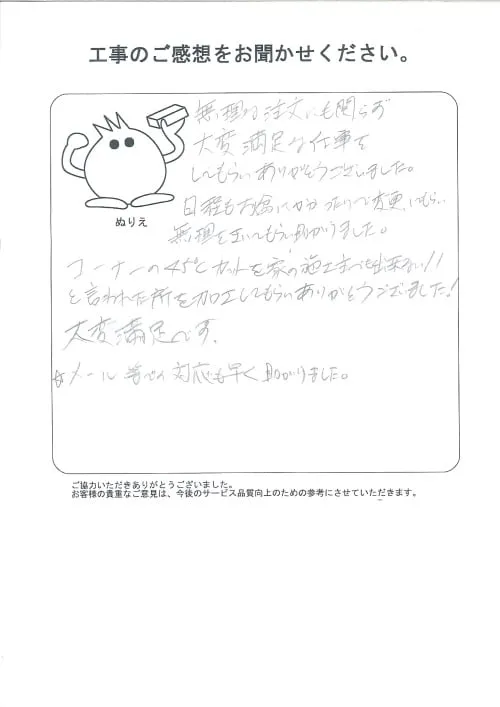 工事のご感想をお聞かせください。
無理な注文にも関らず
大変満足な仕事を
してもらいありがとうございました。
日程もお盆にかかったりで変更してもらい
無理を言いてもらい助かりました。
ぬりえ
コーナーの45℃カットを家の施工までも出来ない!!
と言われた所を加工してもらいありがとうございました!
大変満足です。
☆メール等での対応も早く助かりました。
ご協力いただきありがとうございました。
お客様の貴重なご意見は、今後のサービス品質向上のための参考にさせていただきます。